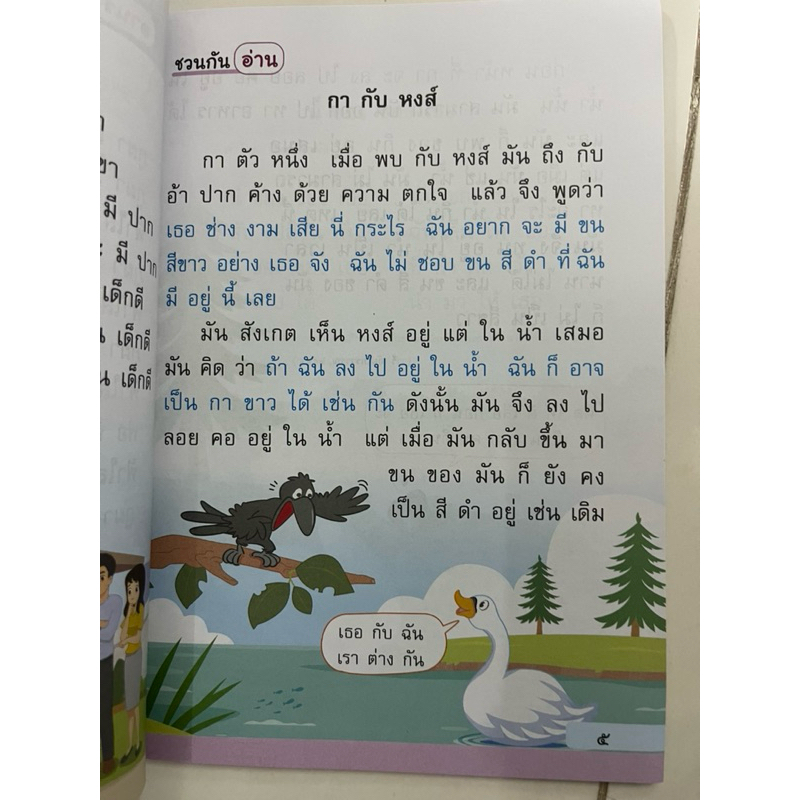 ชวนกัน อ่าน
กา กับ หงส์
กา ตัว หนึ่ง เมื่อ พบ กับ หงส์ มัน ถึง กับ
อ้า ปาก ค้าง ด้วย ความ ตกใจ แล้ว จึง พูดว่า
เธอ ช่าง งาม เสีย นี่ กระไร ฉัน อยาก จะ มี ขน
สีขาว อย่าง เธอ จัง ฉัน ไม่ ชอบ ขน สี ดำ ที่ ฉัน
มี อยู่ นี้ เลย
มัน สังเกต เห็น หงส์ อยู่ แต่ ใน น้ำ เสมอ
มัน คิด ว่า ถ้า ฉัน ลง ไป อยู่ ใน น้ำ ฉัน ก็ อาจ
เป็น กา ขาว ได้ เช่น กัน ดังนั้น มัน จึง ลง ไป
ลอย คอ อยู่ ใน น้ำ แต่ เมื่อ มัน กลับ ขึ้น มา
ขน ของ มัน ก็ ยัง คง
เป็น สี ดำ อยู่ เช่น เดิม
เธอ กับ ฉัน
เรา ต่าง กัน
๕
มี ปาก
มี ปาก
เด็กดี
เด็กดี
เด็กดี